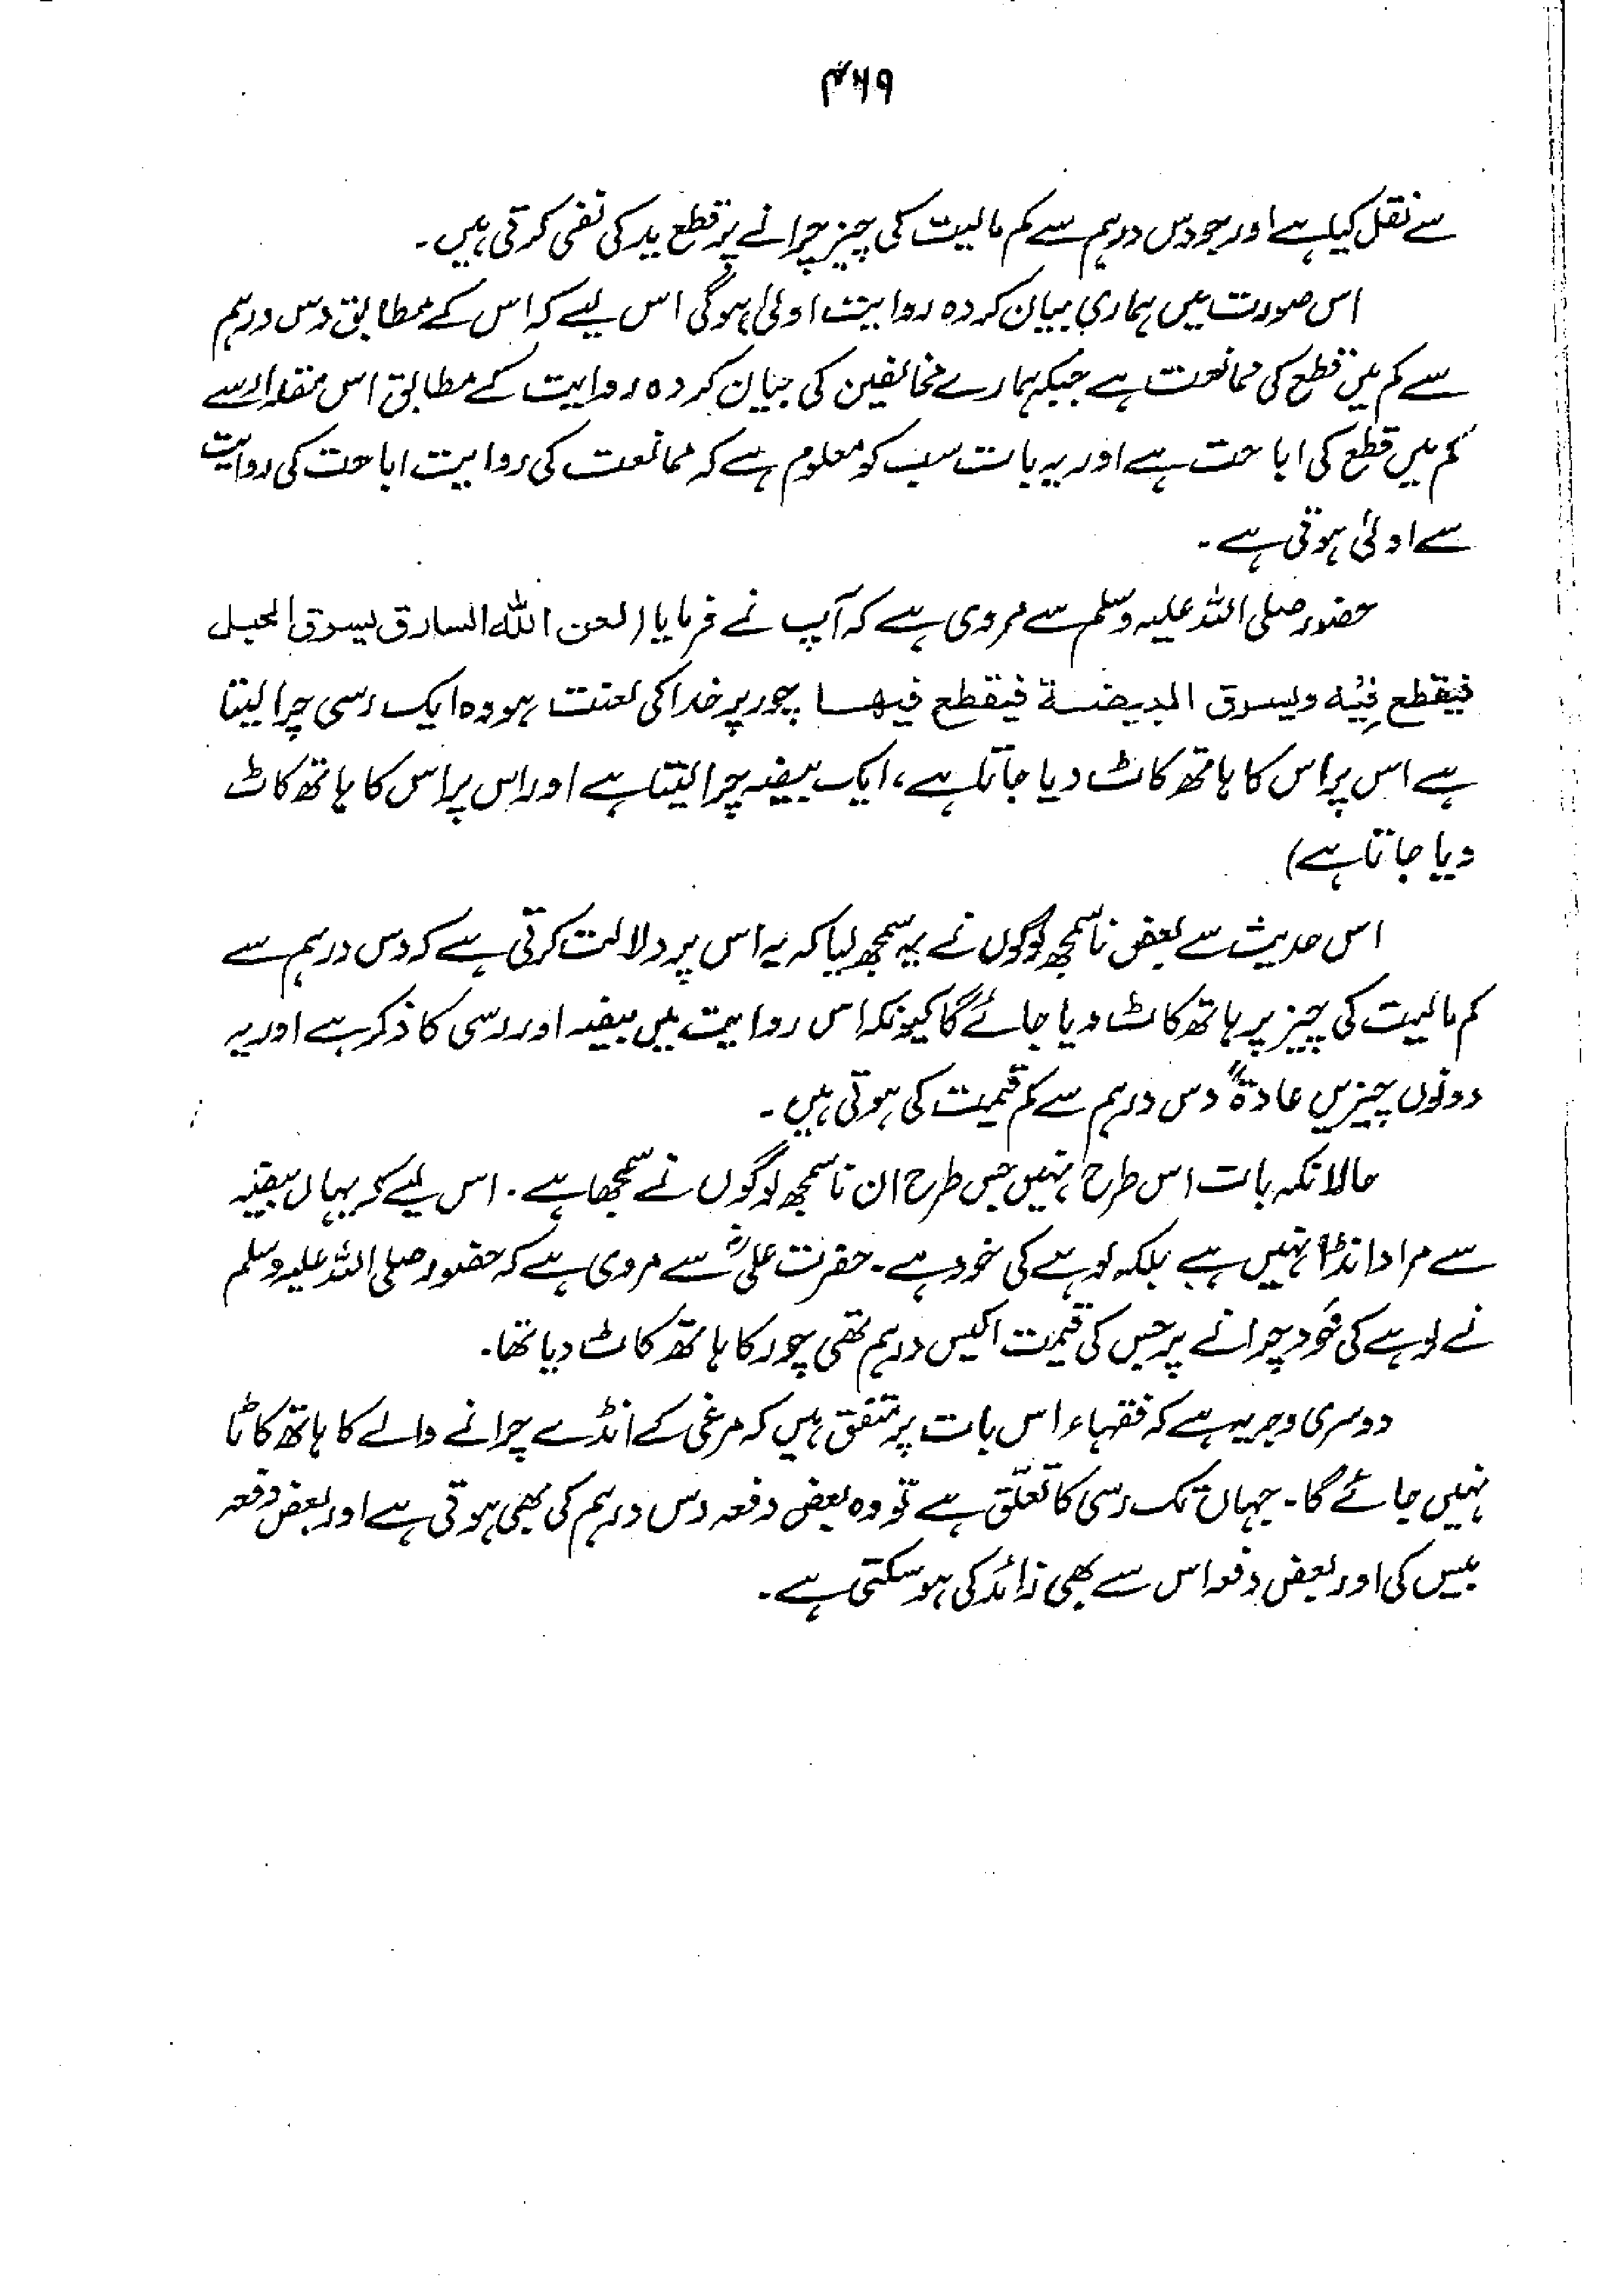 ۴۶۹
سے نقل کیا ہے اور جو دس درہم سے کم مالیت کی چیز چرانے پر قطع ید کی نفی کرتی ہیں۔
اس صورت میں ہماری بیان کردہ روایت اولیٰ ہوگی اس لیے کہ اس کے مطابق دس درہم
سے کم میں قطع کی ممانعت ہے جبکہ ہمارے مخالفین کی بیان کردہ روایت کے مطابق اس مقدار سے
کم میں قطع کی اباحت ہے اور یہ بات سب کو معلوم ہے کہ ممانعت کی روایت اباحت کی روایت
سے اولیٰ ہوتی ہے۔
حضور صلی اللہ علیہ وسلم سے مروی ہے کہ آپ نے فرمایا (لعن اللہ السارق یسرق الحبل
فیقطع فِیْہ ویسرق البیضۃ فیقطع فیھا چور پر خدا کی لعنت ہو وہ ایک رسی چرا لیتا
ہے اس پر اس کا ہاتھ کاٹ دیا جاتا ہے، ایک بیضہ چرا لیتا ہے اور اس پر اس کا ہاتھ کاٹ
دیا جاتا ہے)
اس حدیث سے بعض ناسمجھ لوگوں نے یہ سمجھ لیا کہ یہ اس پر دلالت کرتی ہے کہ دس درہم سے
کم مالیت کی چیز پر ہاتھ کاٹ دیا جائے گا کیونکہ اس روایت میں بیضہ اور رسی کا ذکر ہے اور یہ
دونوں چیزیں عادۃً دس درہم سے کم قیمت کی ہوتی ہیں۔
حالانکہ بات اس طرح نہیں جس طرح ان ناسمجھ لوگوں نے سمجھا ہے۔ اس لیے کہ یہاں بیضہ
سے مراد انڈا نہیں ہے بلکہ لوہے کی خود ہے۔ حضرت علیؓ سے مروی ہے کہ حضور صلی اللہ علیہ وسلم
نے لوہے کی خَود چرانے پر جس کی قیمت اکیس درہم تھی چور کا ہاتھ کاٹ دیا تھا۔
دوسری وجہ یہ ہے کہ فقہاء اس بات پر متفق ہیں کہ مرغی کے انڈے چرانے والے کا ہاتھ کاٹا
نہیں جائے گا۔ جہاں تک رسی کا تعلّق ہے تو وہ بعض دفعہ دس درہم کی بھی ہوتی ہے اور بعض دفعہ
بیس کی اور بعض دفعہ اس سے بھی زائد کی ہوسکتی ہے۔